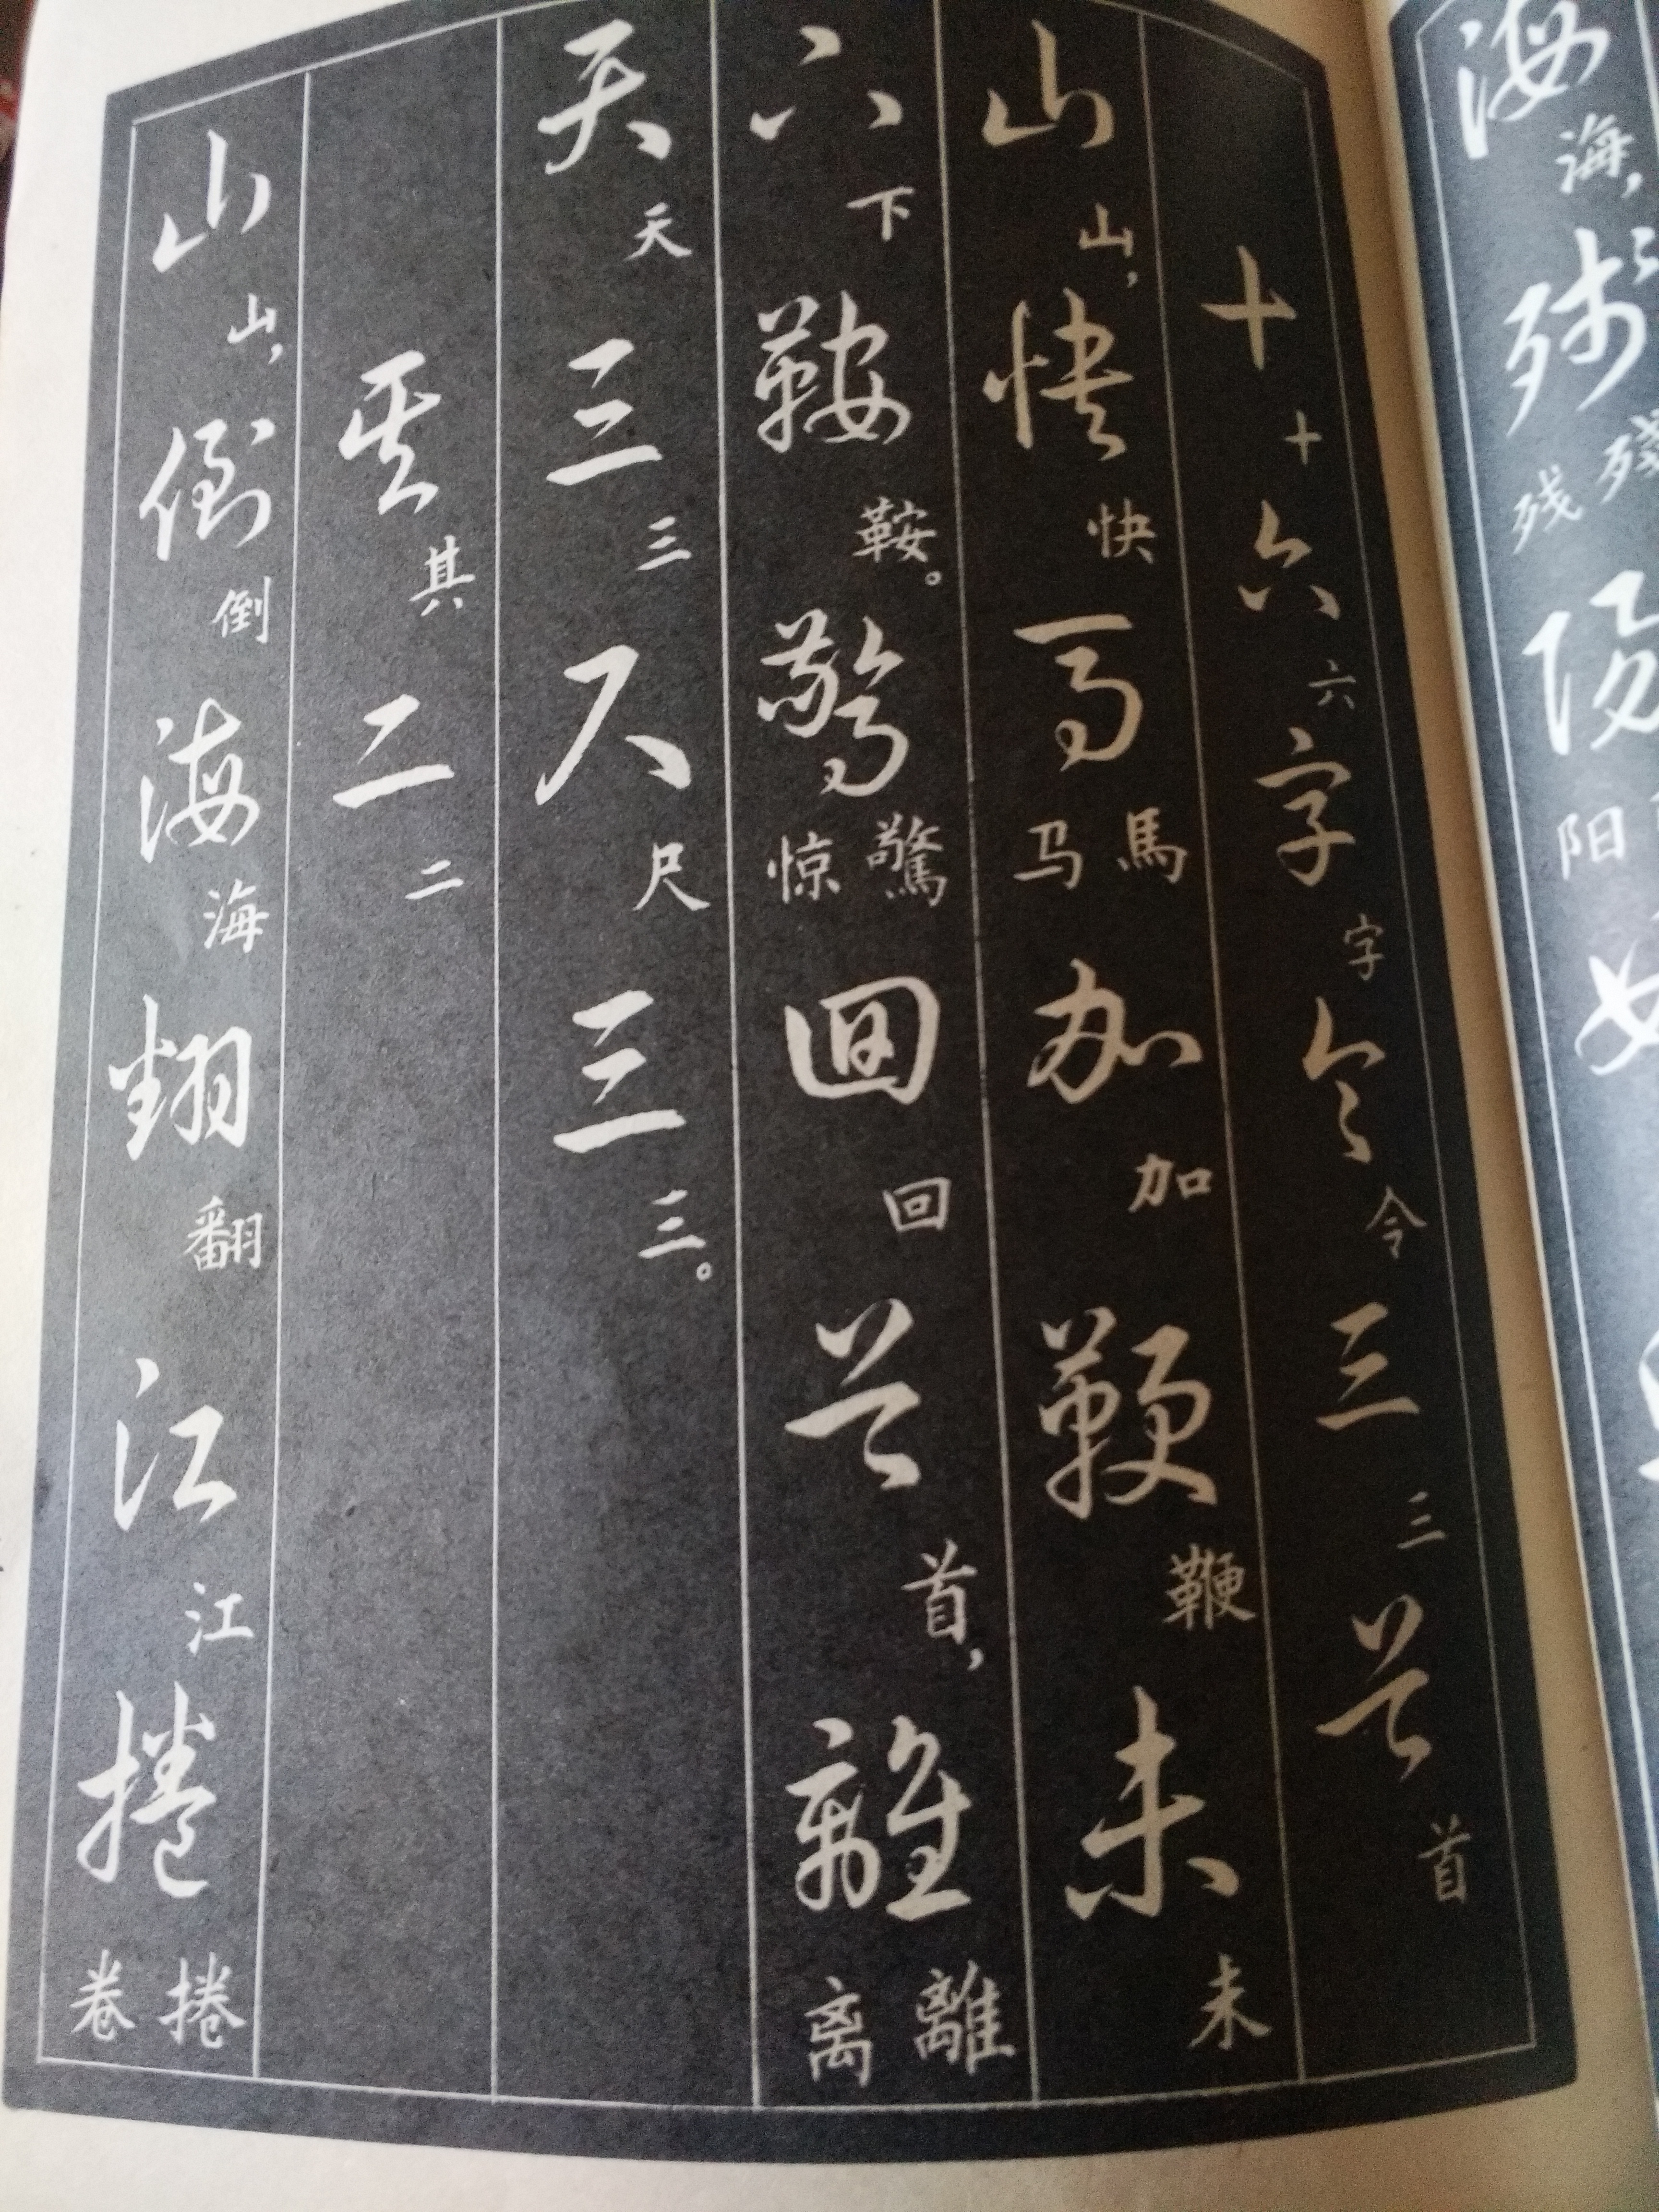 海海，殘殘残陽阳如
十十六六字字令令三三首首
山山，快快馬馬马加加鞭鞭未未
下下鞍鞍。驚驚惊回回首首，離離离
天天三三尺尺三三。
其其二二
山山，倒倒海海翻翻江江捲捲卷